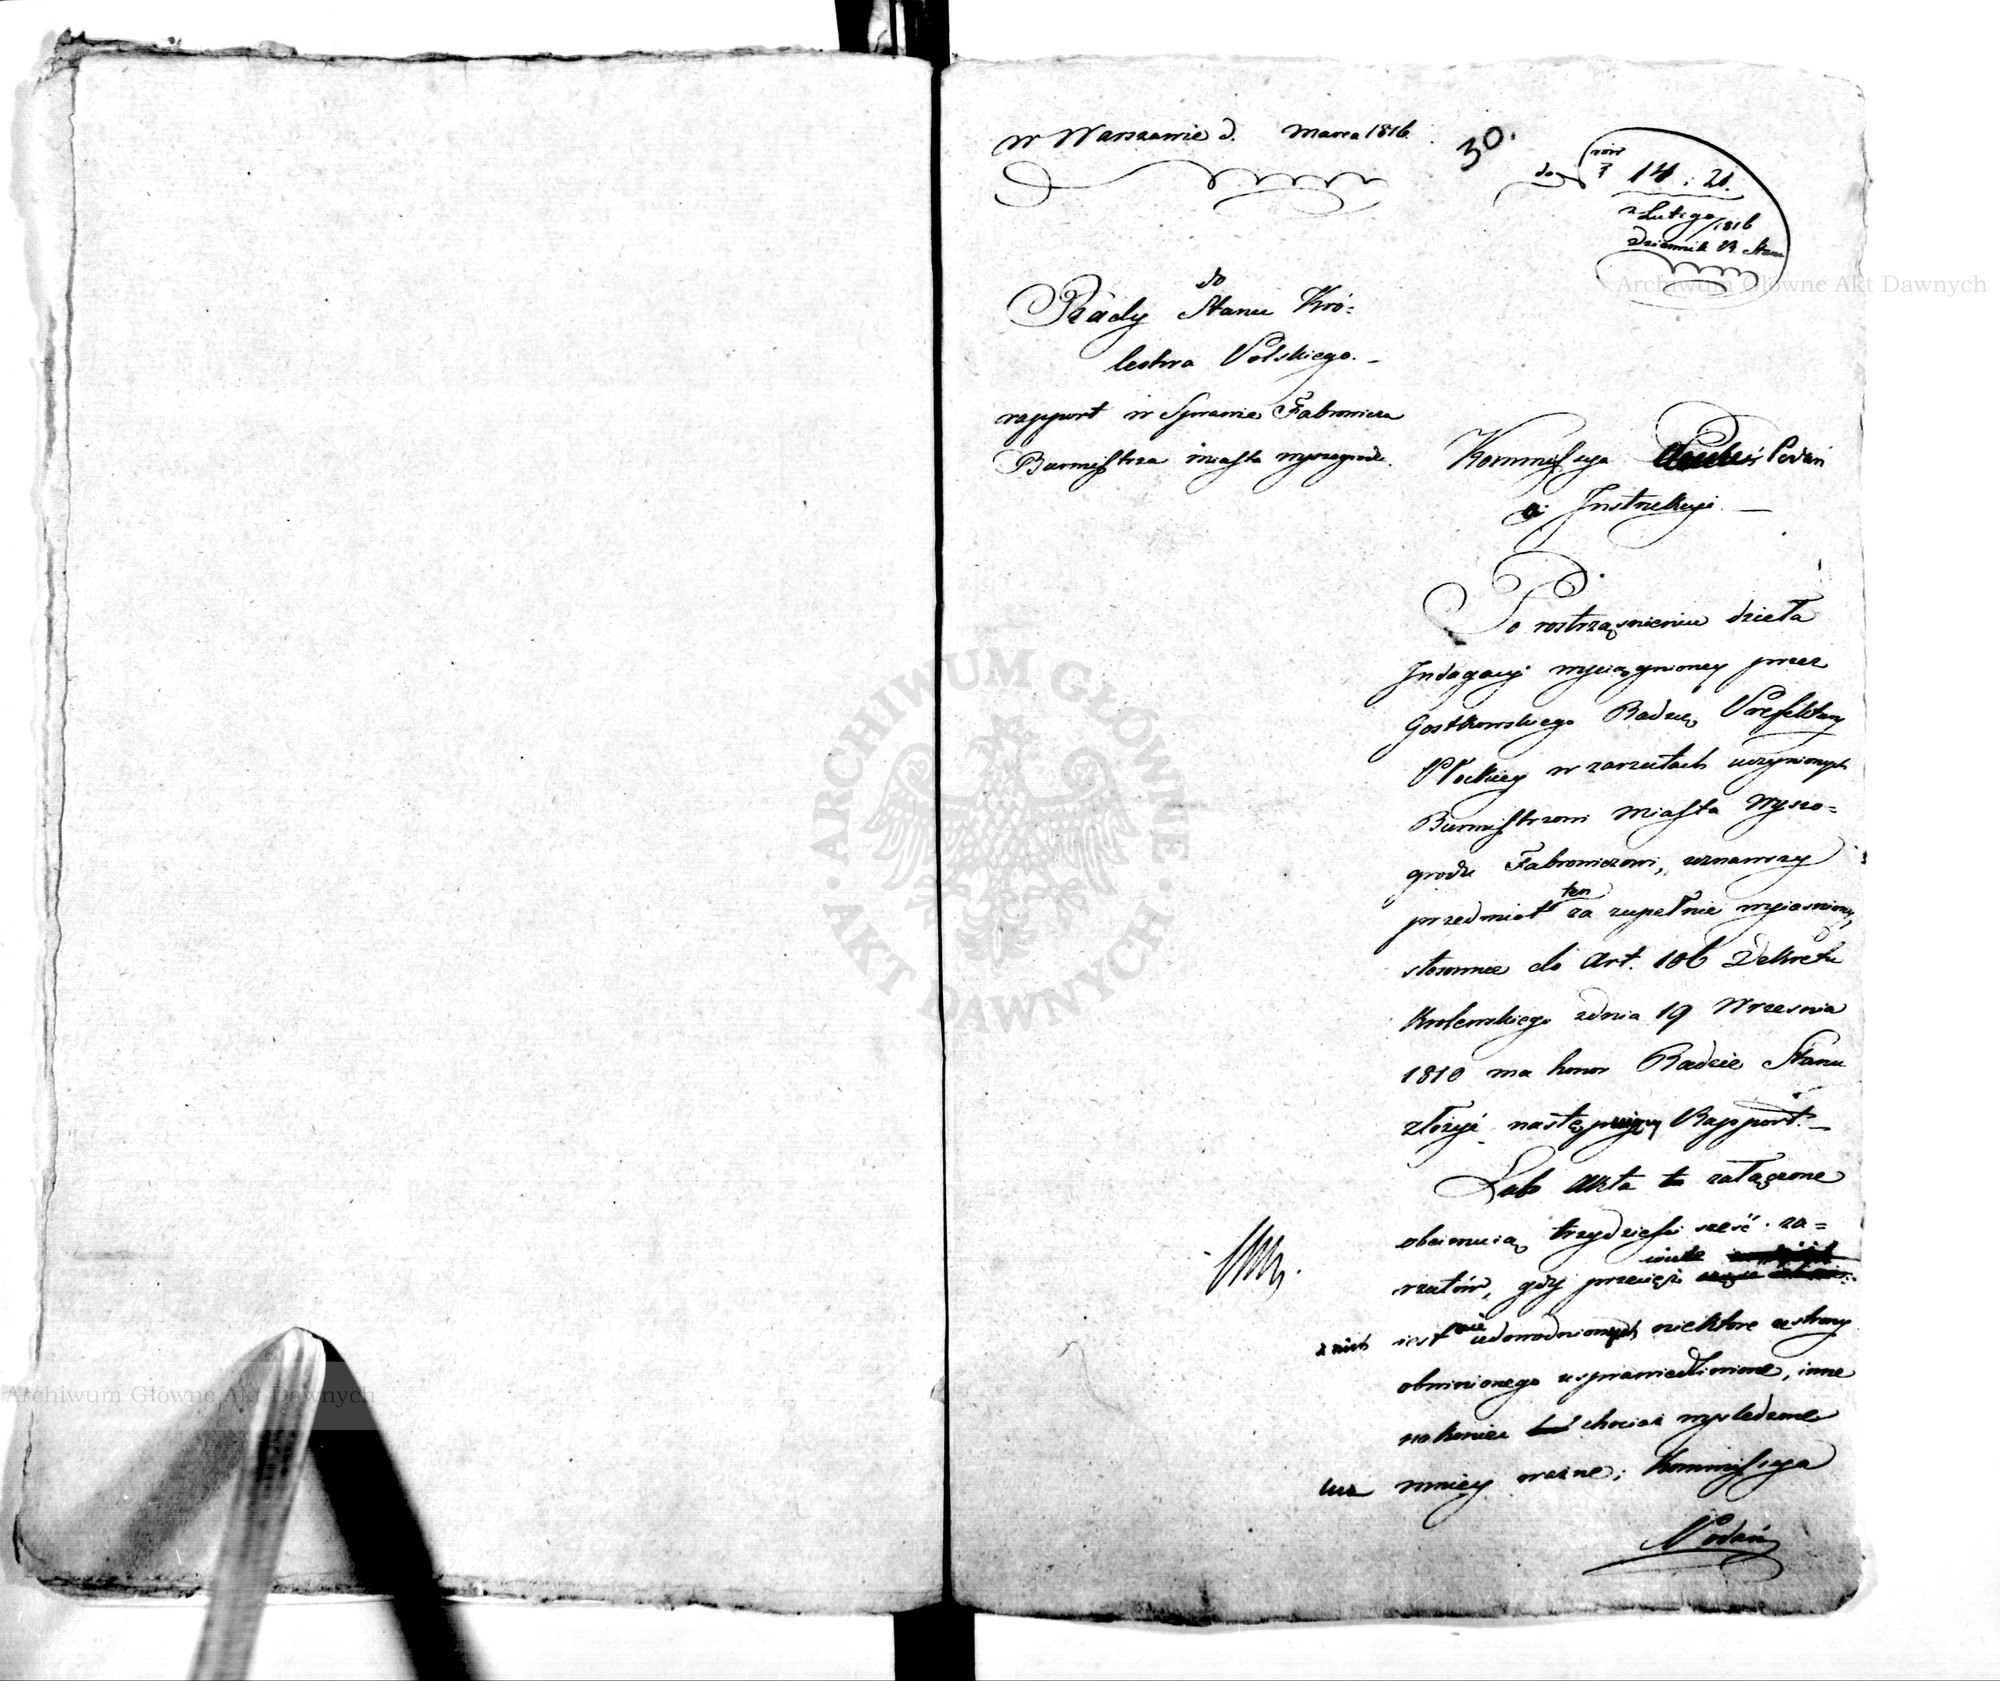 w Warszawie d. Marca 1816.
30.
do
14 : 21.
z Lutego 1816
Dziennik R. Stanu
do
Rady Stanu Kró=
lestwa Polskiego. _
rapport w Sprawie Fabrowicza
Burmistrza miasta Wyszogrodu.
Kommissya Podań
i Instrukcyi. _
Po rostrząśnieniu dzieła
Indagacyi wyciągnioney przez
Gostkowskiego Radzcę Prefektury
Płockiey w zarzutach uczynionych
Burmistrzowi Miasta Wyszo=
grodu Fabrowiczowi, uznawszy
przedmiot ten za zupełnie wyiaśniony,
stosownie do Art. 106 Dekretu
Krolewskiego z dnia 19 Wrzesnia
1810 ma honor Radzie Stanu
złożyć następuiący Rapport. _
Lubo Akta tu załączone
obeimuią trzydzieści sześć za=
rzutów, gdy przecięż wiele
z nich iest nie udowodnionych niektore ze strony
obwinionego usprawiedliwione, inne
nakoniec chociaż wyśledzone
lecz mniey ważne; Kommissya
Podań
Archiwum Główne Akt Dawnych
ARCHIWUM GŁÓWNE · AKT DAWNYCH ·
Archiwum Główne Akt Dawnych